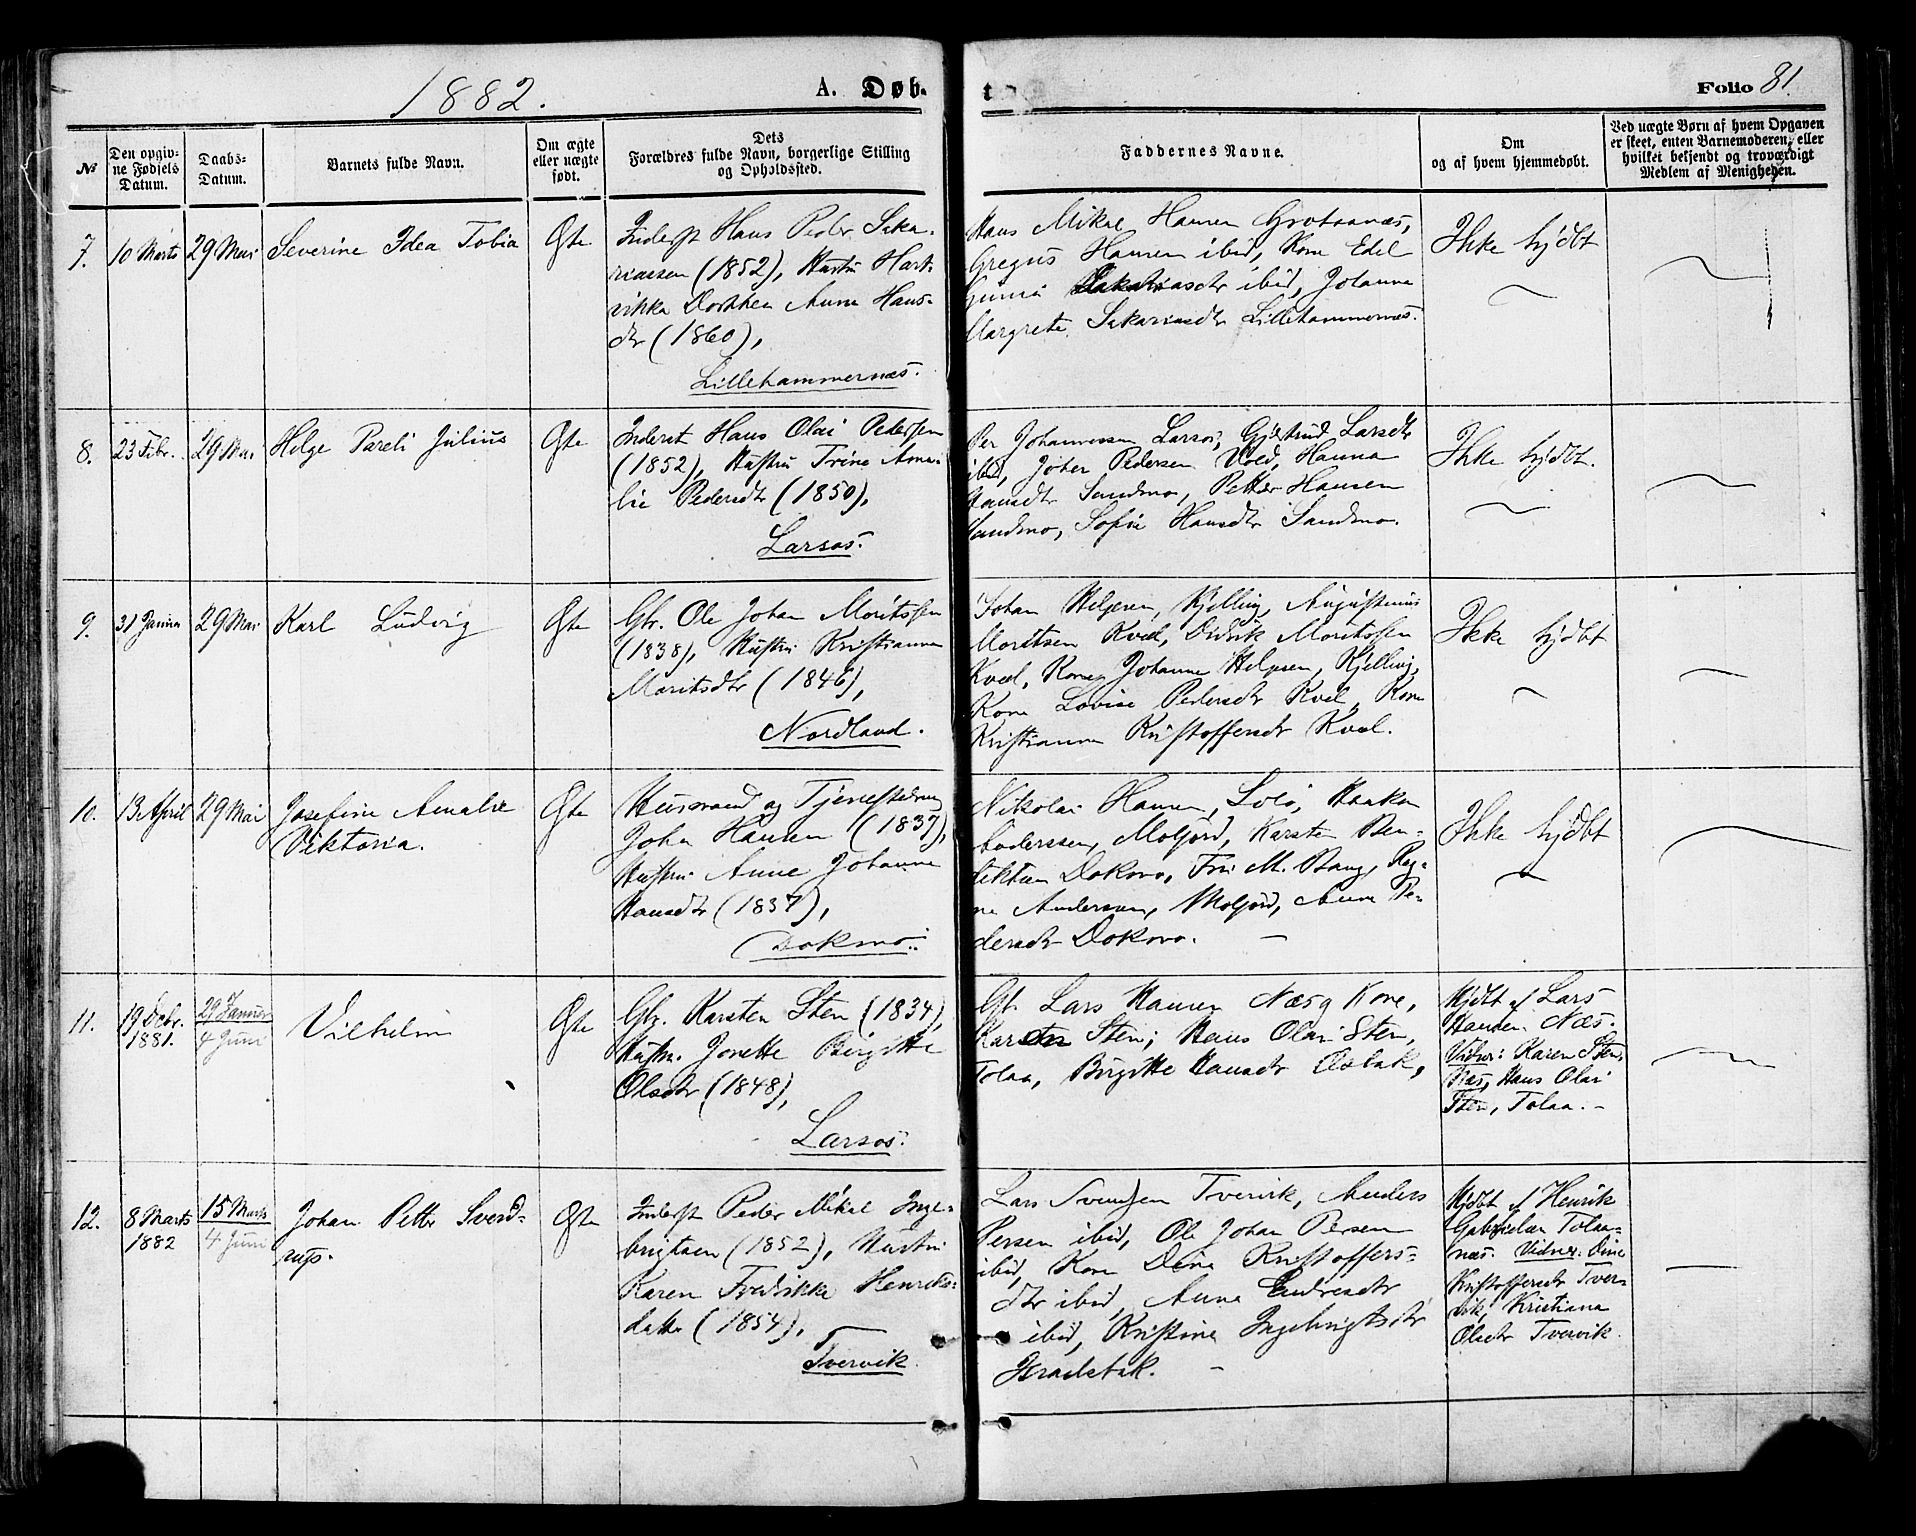 1882.
A. Døb-
t
Folio 81.
№
Den opgiv-
ne Fødsels
Datum.
Daabs-
Datum.
Barnets fulde Navn.
Om ægte
eller uægte
født.
Dets
Forældres fulde Navn, borgerlige Stilling
og Opholdssted.
Faddernes Navne.
Om
og af hvem hjemmedøbt.
Ved uægte Børn af hvem Opgaven
er skeet, enten Barnemoderen, eller
hvilket bekjendt og troværdigt
Medlem af Menigheden.
7.
10 Marts
29 Mai
Severine Idea Tobia
Ægte
Inderst Hans Peder Saka-
riassen (1852), Hustru Hart-
vikka Dorthea Anna Hans-
dtr (1860),
Lillehammernæs.
Hans Mikal Hansen Grotaanæs,
Gregus Hansen ibid, Kone Edel
Sakariasdtr ibid, Johanna
Margrete Sakariasdtr Lillehammernæs.
Ikke hjdbt
8.
23 Febr.
29 Mai
Helge Pareli Julius
Ægte
Inderst Hans Olai Pedersen
(1852), Hustru Trine Ama-
lie Pedersdtr (1850),
Larsos.
Per Johannessen Larsos, Gjertrud Larsdtr
ibid, Johan Pedersen Vold, Hanna
Hansdtr Sandmo, Petter Hansen
Sandmo, Sofie Hansdtr Sandmo.
Ikke hjdbt.
9.
31 Januar
29 Mai
Karl Ludvig
Ægte
Gbr. Ole Johan Moritssen
(1838), Hustru Kristianna
Moritsdtr (1846),
Nordland.
Johan Helgesen, Kjelling, Augustinus
Moritsen Kval, Didrik Moritssen
Kval, Kone Johanna Helgesen, Kjelling,
Kone Lovise Pedersdtr Kval, Kone
Kristianna Kristoffersdtr Kval.
Ikke hjdbt
10.
13 April
29 Mai
Josefine Amalie
Viktoria.
Ægte
Husmand og Tjenestedreng
John Hansen (1837),
Hustru Anne Johanna
Hansdtr (1837),
Dokmo.
Nikolai Hansen, Solø, Haakon
Anderssen, Molfjord, Karsten Ben-
diktsen Dokmo, Fru M. Bang, Reg-
ne Andersen, Molfjord, Anna Pe-
dersdtr Dokmo. —
Ikke hjdbt
11.
19 Debr.
1881.
29 Januar
4 Juni
Vilhelm
Ægte
Gbr. Karsten Sten (1834),
Hustru Jonette Birgitte
Olsdtr (1848),
Larsos.
Gbr. Lars Hansen Næs og Kone,
Karsten Sten, Hans Olai Sten,
Tolaa, Birgitte Hansdtr Esbak,
Hjdbt af Lars
Hansen Næs.
Vidner: Karen Sten,
Næs, Hans Olai
Sten, Tolaa. –
12.
8 Marts
1882
15 Marts
4 Juni
Johan Petter Sverd-
rups.
Ægte
Inderst Peder Mikal Inge-
brigtsen (1852), Hustru
Karen Fredrikke Henriks-
datter (1854),
Tvervik.
Lars Svendsen Tvervik, Anders
Persen ibid, Ole Johan Persen
ibid, Kone Dina Kristoffers-
dtr ibid, Anna Endresdtr
ibid, Kristine Ingebrigtsdtr
Israelsbak. –
Hjdbt af Henrik
Gabrielsen Tolaa-
næs. Vidner: Dina
Kristoffersdtr Tver-
vik, Kristiana
Olsdtr Tvervik.